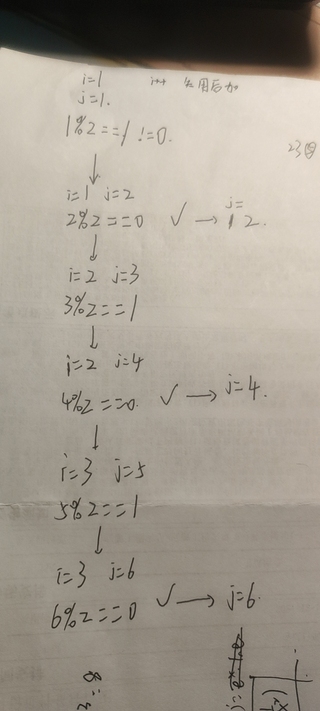 i=1 i++ 先用后加
j=1.
1%2==1 != 0.
↓
i=1 j=2 j=
2%2==0 ✓ → 1 2.
↓
i=2 j=3
3%2==1
↓
i=2 j=4
4%2==0. ✓ → j=4.
↓
i=3 j=5
5%2==1
↓
i=3 j=6
6%2==0 ✓ → j=6.